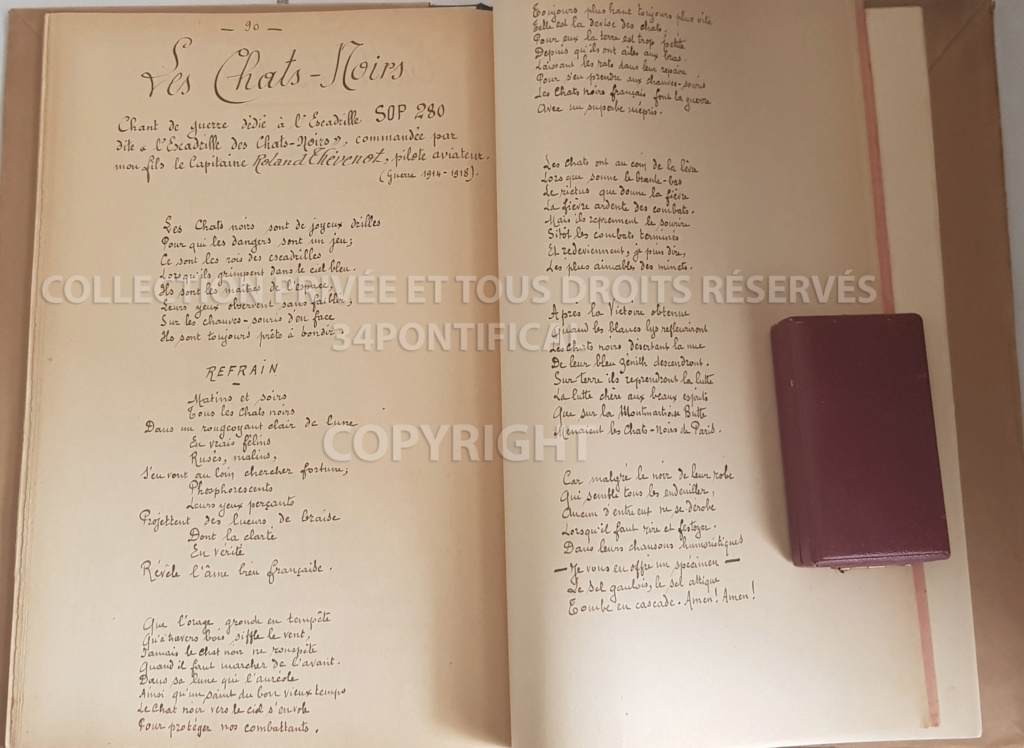 — 90 —
Les Chats-Noirs
Chant de guerre dédié à l'Escadrille SOP 280
dite « l'Escadrille des Chats-Noirs », commandée par
mon fils le Capitaine Roland Thévenot, pilote aviateur.
(Guerre 1914-1918).
Les Chats noirs sont de joyeux drilles
Pour qui les dangers sont un jeu;
Ce sont les rois des escadrilles
Lorsqu'ils grimpent dans le ciel bleu.
Ils sont les maîtres de l'espace,
Leurs yeux observent sans faiblir;
Sur les chauves-souris d'en face
Ils sont toujours prêts à bondir.
REFRAIN
Matins et soirs
Tous les Chats noirs
Dans un rougeoyant clair de lune
En vrais félins
Rusés, malins,
S'en vont au loin chercher fortune;
Phosphorescents
Leurs yeux perçants
Projettent des lueurs de braise
Dont la clarté
En vérité
Révèle l'âme bien française.
Que l'orage gronde en tempête
Qu'à travers bois siffle le vent,
Jamais le chat noir ne rouspète
Quand il faut marcher de l'avant.
Dans sa lune qui l'auréole
Ainsi qu'un saint du bon vieux temps
Le Chat noir vers le ciel s'envole
Pour protéger nos combattants.
Toujours plus haut toujours plus vite
Telle est la devise des chats;
Pour eux la terre est trop petite
Depuis qu'ils ont ailes aux bras.
Laissant les rats dans leur repaire
Pour s'en prendre aux chauves-souris
Les Chats noirs français font la guerre
Avec un superbe mépris.
Les Chats ont au coin de la lèvre
Lorsque sonne le branle-bas
Le rictus que donne la fièvre
La fièvre ardente des combats.
Mais ils reprennent le sourire
Sitôt les combats terminés
Et redeviennent, je puis dire,
Les plus aimables des minets.
Après la Victoire obtenue
Quand les blancs lys refleuriront
Les Chats noirs désertant la nue
De leur bleu zénith descendront.
Sur terre ils reprendront la lutte
La lutte chère aux beaux esprits
Que sur la Montmartroise Butte
Menaient les Chats-Noirs de Paris.
Car malgré le noir de leur robe
Qui semble tous les endeuiller,
Aucun d'entre eux ne se dérobe
Lorsqu'il faut rire et festoyer.
Dans leurs chansons humoristiques
— Je vous en offre un spécimen —
Le sel gaulois, le sel attique
Tombe en cascade. Amen! Amen!
COLLECTION PRIVÉE ET TOUS DROITS RÉSERVÉS
34PONTIFICAL
COPYRIGHT